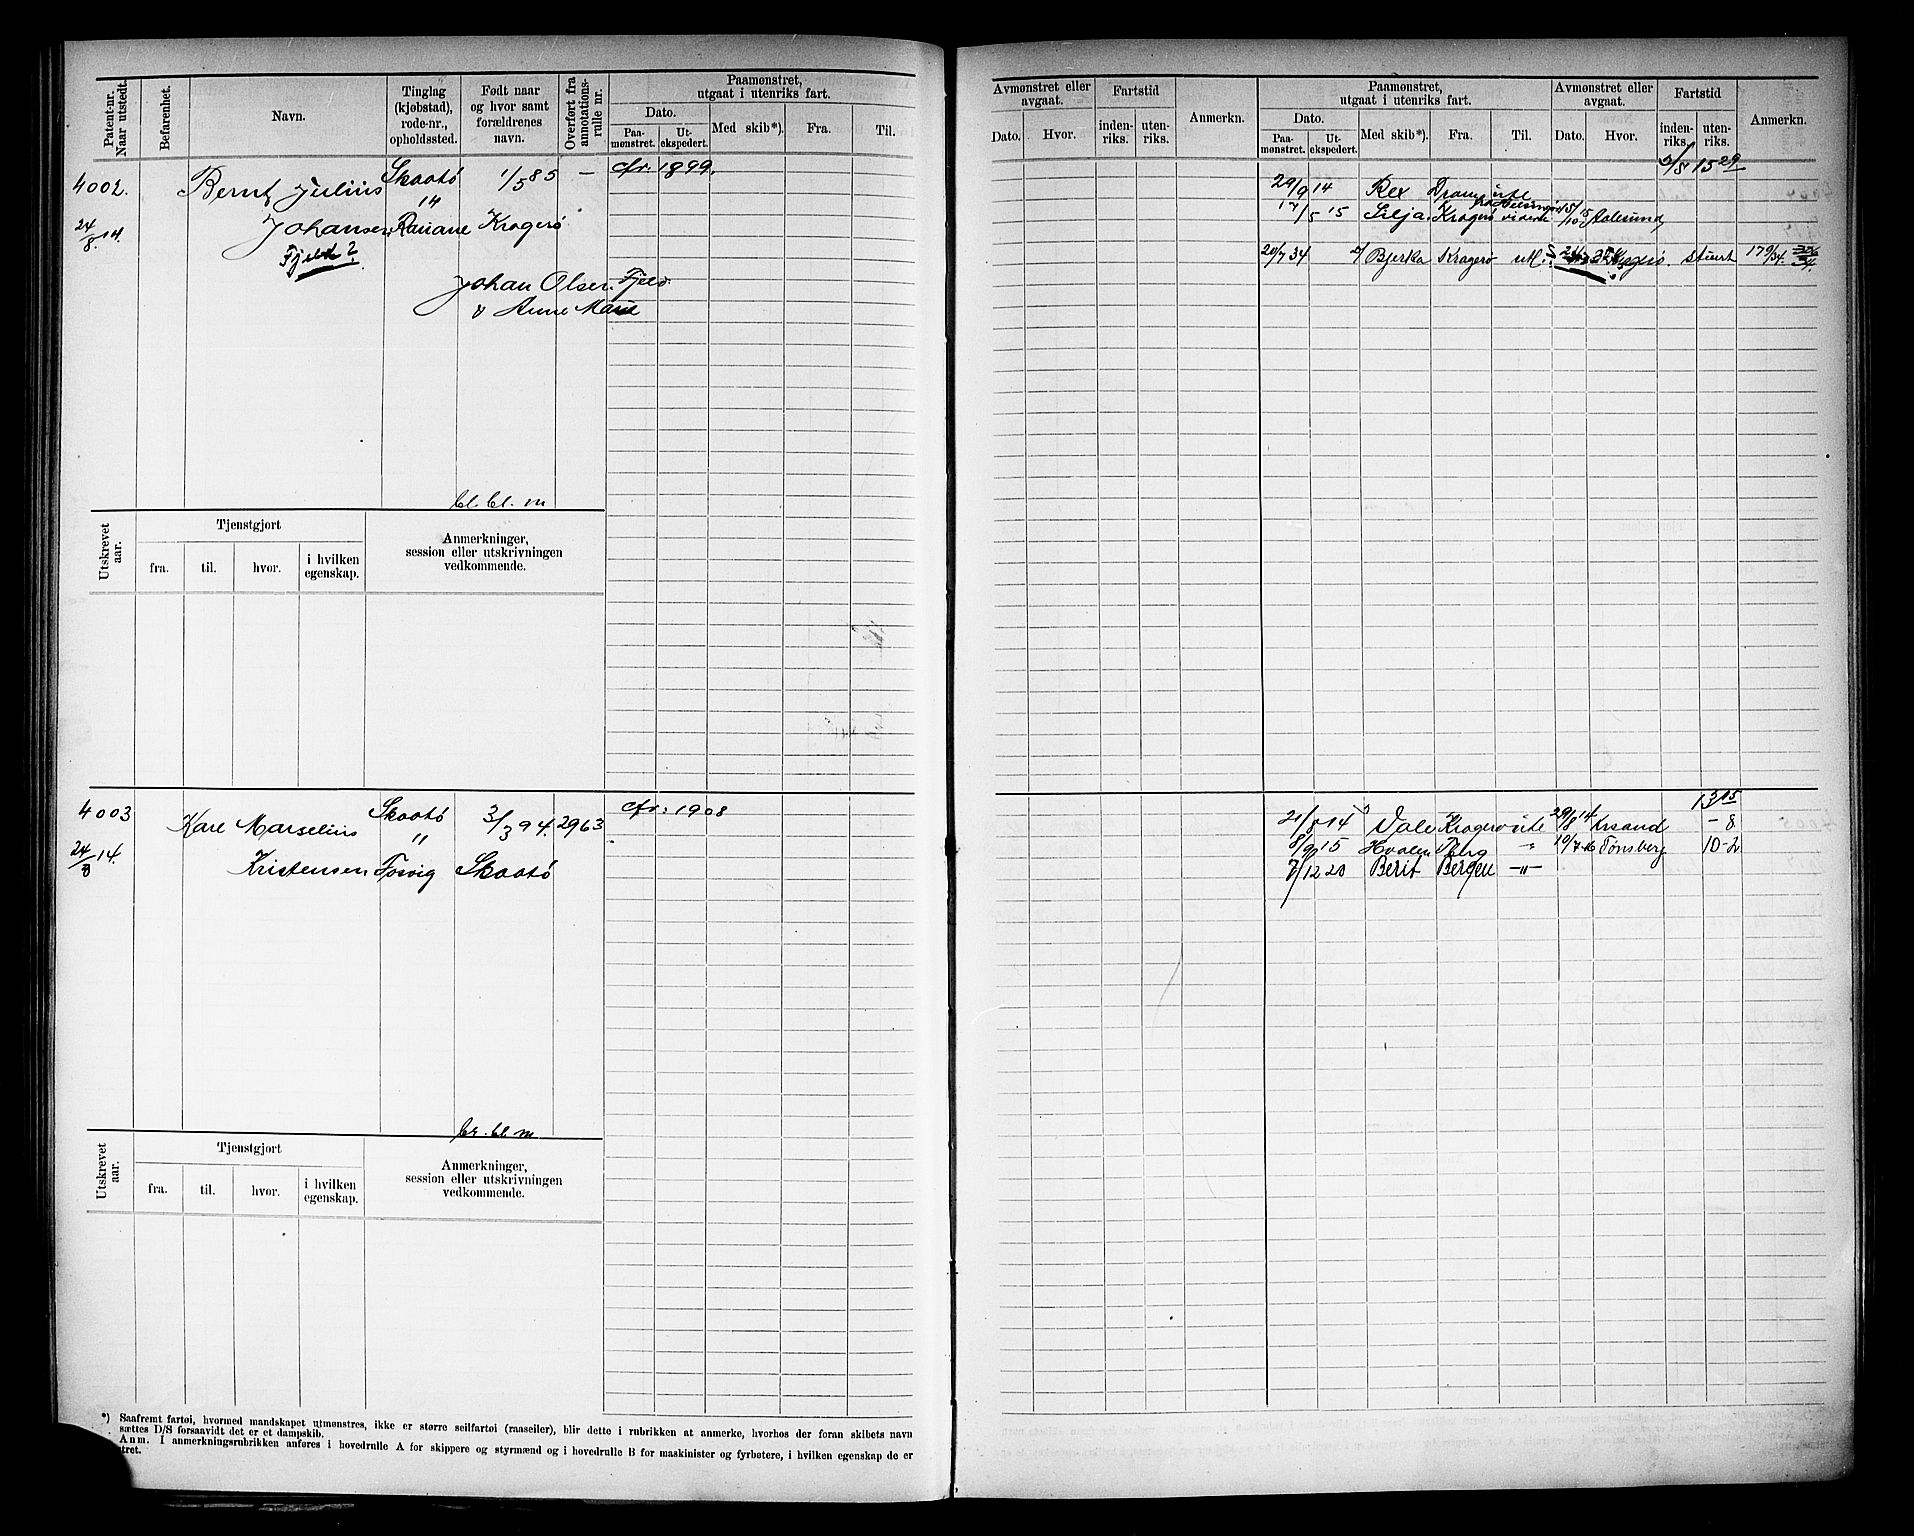 Patent-nr. Naar utstedt.
Befarenhet.
Navn.
Tinglag (kjøbstad), rode-nr., opholdssted.
Født naar og hvor samt forældrenes navn.
Overført fra annotations-rulle nr.
Paamønstret, utgaat i utenriks fart.
Dato.
Paa-mønstret.
Ut-ekspedert.
Med skib*).
Fra.
Til.
4002.
Bernt Julius
Skaatø
1/5 85
—
cfr. 1899.
24/8 14.
Johansen
Kragerø
Fjeld ?
Johan Olsen Fjeld
& Anne Marie
bl. bl. m
Utskrevet aar.
Tjenstgjort
fra.
til.
hvor.
i hvilken egenskap.
Anmerkninger, session eller utskrivningen vedkommende.
4003
Kare Marselius
Skaatø
3/3 94.
2963
cfr: 1908
24/8 14.
"
Kristensen
Fosvig
Skaatø
br. bl. m
Utskrevet aar.
Tjenstgjort
fra.
til.
hvor.
i hvilken egenskap.
Anmerkninger, session eller utskrivningen vedkommende.
*) Saafremt fartøi, hvormed mandskapet utmønstres, ikke er større seilfartøi (raaseiler), blir dette i rubrikken at anmerke, hvorhos der foran skibets navn
sættes D/S forsaavidt det er et dampskib.
Anm. I anmerkningsrubrikken anføres i hovedrulle A for skippere og styrmænd og i hovedrulle B for maskinister og fyrbøtere, i hvilken egenskap de er
tret.
Avmønstret eller avgaat.
Dato.
Hvor.
Fartstid
inden-riks.
uten-riks.
Anmerkn.
Paamønstret, utgaat i utenriks fart.
Dato.
Paa-mønstret.
Ut-ekspedert.
Med skib*).
Fra.
Til.
Avmønstret eller avgaat.
Dato.
Hvor.
Fartstid
inden-riks.
uten-riks.
Anmerkn.
29/9 14 Rex Dram ute
17/5 15 Silja Kragerø 15/10 15 Aalesund
20/7 34 Bjerka Kragerø utl. Kragerø. stuert 179/34.
13 15
21/8 14 Vale Kragerø ute 29/8 14 Krsand – 8
8/9 15 Hvalen Tbrg " 19/7 16 Tønsberg 10-2
7/12 20 Berit Bergen –"–